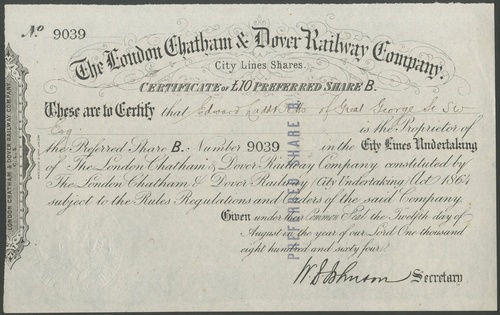 No 9039
The London Chatham & Dover Railway Company.
City Lines Shares.
CERTIFICATE OF £10 PREFERRED SHARE B.
These are to Certify that Edward Ladd of Great George St SW
Esq.
is the Proprietor of
the Preferred Share B. Number 9039 in the City Lines Undertaking
of The London Chatham & Dover Railway Company constituted by
The London Chatham & Dover Railway (City Undertaking) Act 1864
subject to the Rules Regulations and Orders of the said Company.
Given under their Common Seal the Twelfth day of
August in the year of our Lord One thousand
eight hundred and sixty four.
W D Johnson Secretary
PREFERRED SHARE B
LONDON CHATHAM & DOVER RAILWAY COMPANY